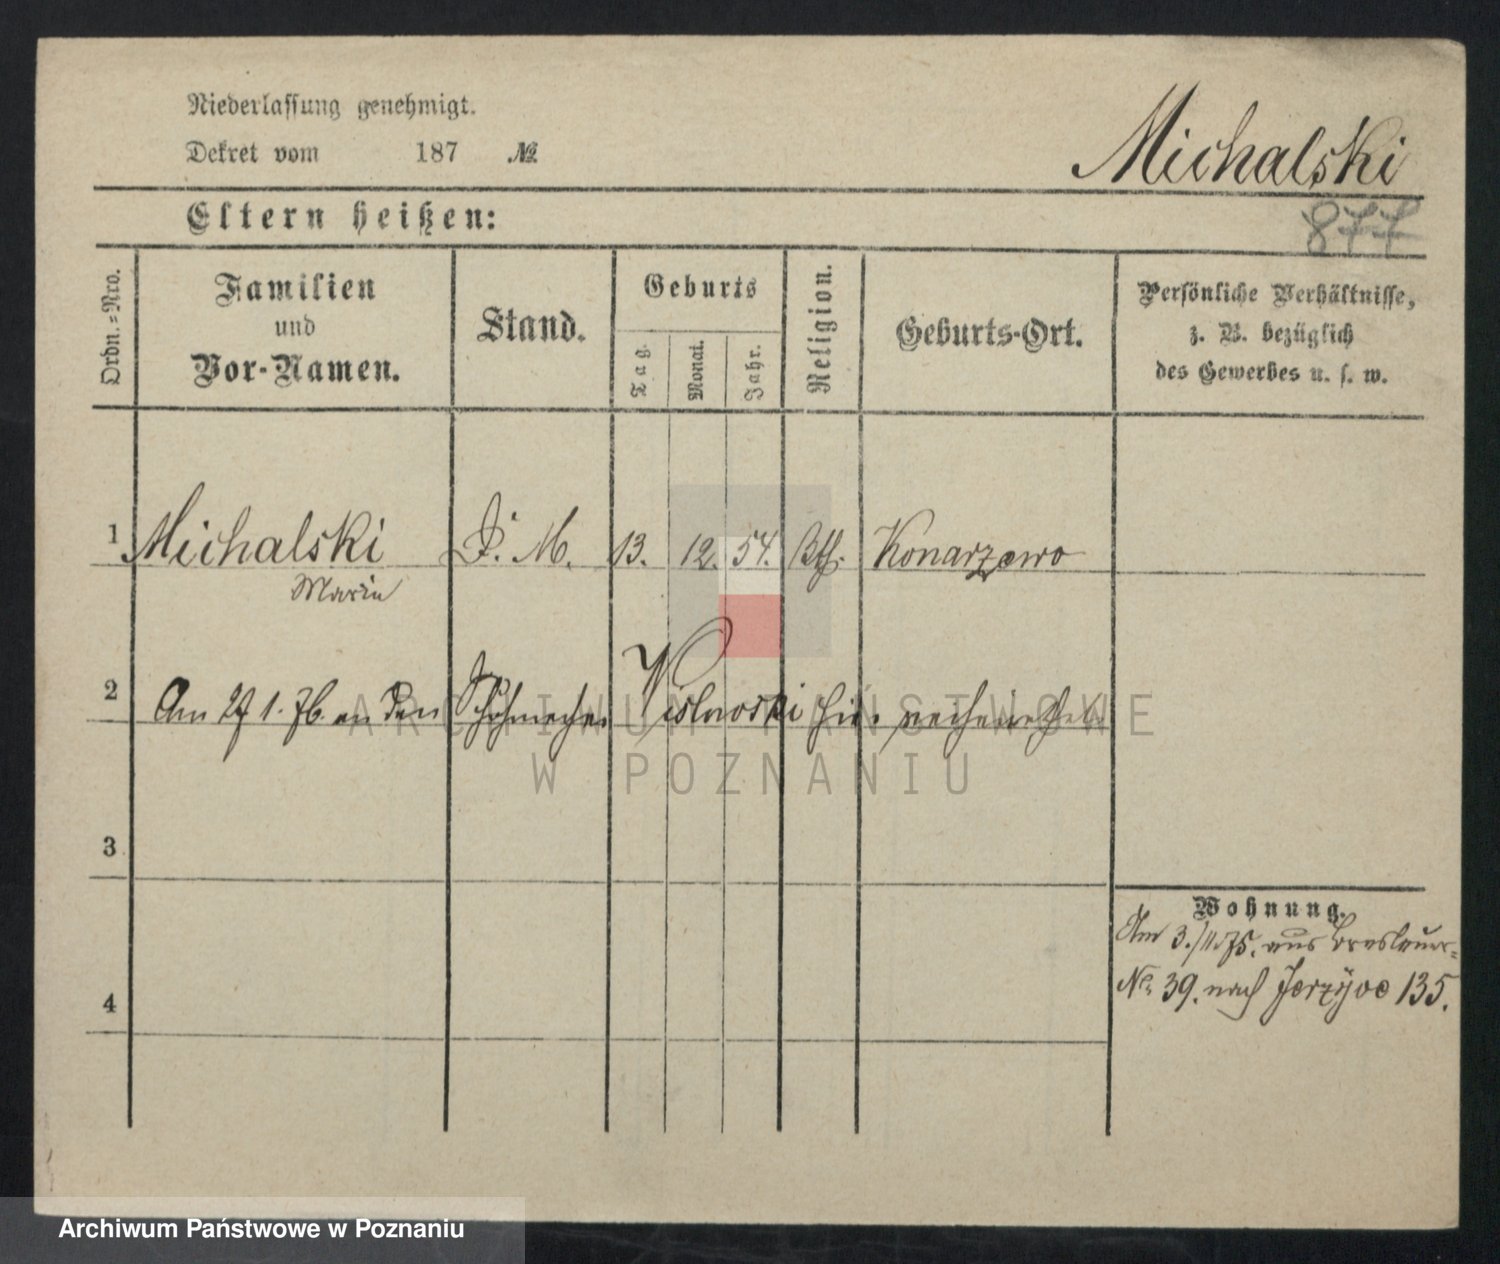 Niederlassung genehmigt.
Dekret vom 187 №
Michalski
Eltern heißen:
877
Ordn.-Nro.
Familien
und
Vor-Namen.
Stand.
Geburts
Tag.
Monat.
Jahr.
Religion.
Geburts-Ort.
Persönliche Verhältnisse,
z. B. bezüglich
des Gewerbes u. s. w.
1 Michalski D. M. 13. 12. 54. Kth. Konarzewo
Marie
2 Am 27 1. 76. an den Schuhmacher Wislawski hier verheirathet.
3
4
Wohnung.
Am 3./11.75. aus Breslauer-
No. 39. nach Jerzyce 135.
ARCHIWUM PAŃSTWOWE
W POZNANIU
Archiwum Państwowe w Poznaniu